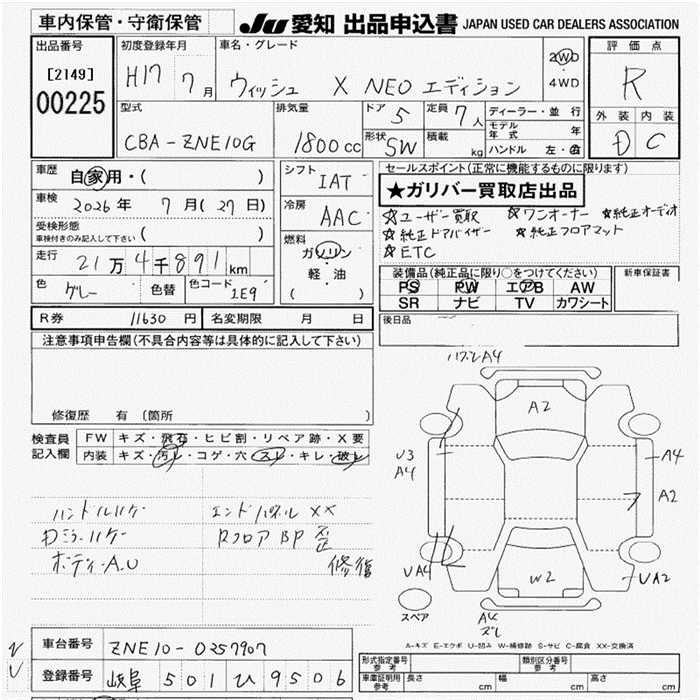 車内保管・守衛保管
JU 愛知 出品申込書 JAPAN USED CAR DEALERS ASSOCIATION
出品番号
[2149]
00225
初度登録年月
H17 7月
車名・グレード
ウィッシュ X NEO エディション
2WD
4WD
評価点
R
外装 内装
D C
型式
CBA-ZNE10G
排気量
1800cc
ドア 5
定員 7人
形状 SW
積載 kg
ディーラー・並行
モデル年式 年
ハンドル 左・右
車歴 自家用・( )
車検 2026年 7月(27日)
受検形態
車検付きのみ記入して下さい ( )
走行 21万4千891km
色 グレー
色替
色コード 1E9
シフト IAT
冷房 AAC
燃料
ガソリン・
軽・油
( )
セールスポイント(正常に機能するものに限ります)
★ガリバー買取店出品
☆ユーザー買取 ☆ワンオーナー ☆純正オーディオ
☆純正ドアバイザー ☆純正フロアマット
☆ETC
装備品(純正品に限り○をつけてください)
PS PW エアB AW
SR ナビ TV カワシート
新車保証書
後日品
R券 11630円
名変期限 月 日
注意事項申告欄(不具合内容等は具体的に記入して下さい)
修復歴 有(箇所 )
検査員記入欄
FW キズ・飛石・ヒビ割・リペア跡・X要
内装 キズ・汚レ・コゲ・穴・スレ・キレ・破レ
ハンドルハゲ エンドパネルXX
Rフロア BP 歪
ボディーA.U 修復
A2
U3
A4
A4
A2
UA4
W2
UA2
スペア
A4
ズレ
A-キズ E-エクボ U-凹ミ W-補修跡 S-サビ C-腐食 XX-交換済
車台番号 ZNE10-0257907
登録番号 岐阜 501 ひ 9506
形式指定番号 参考
類別区分番号 参考
車庫証明用 参考 長さ cm 幅 cm 高さ cm